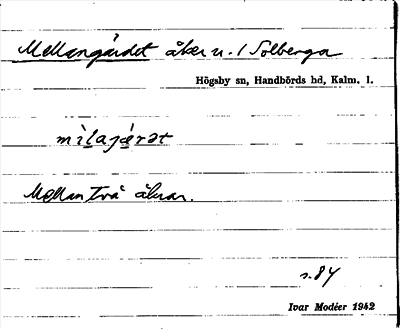 Mellangärdet åker u. 1 Solberga
Högsby sn, Handbörds hd, Kalm. l.
mìlajæ̀rət
Mellan två åkrar.
s. 84
Ivar Modéer 1942